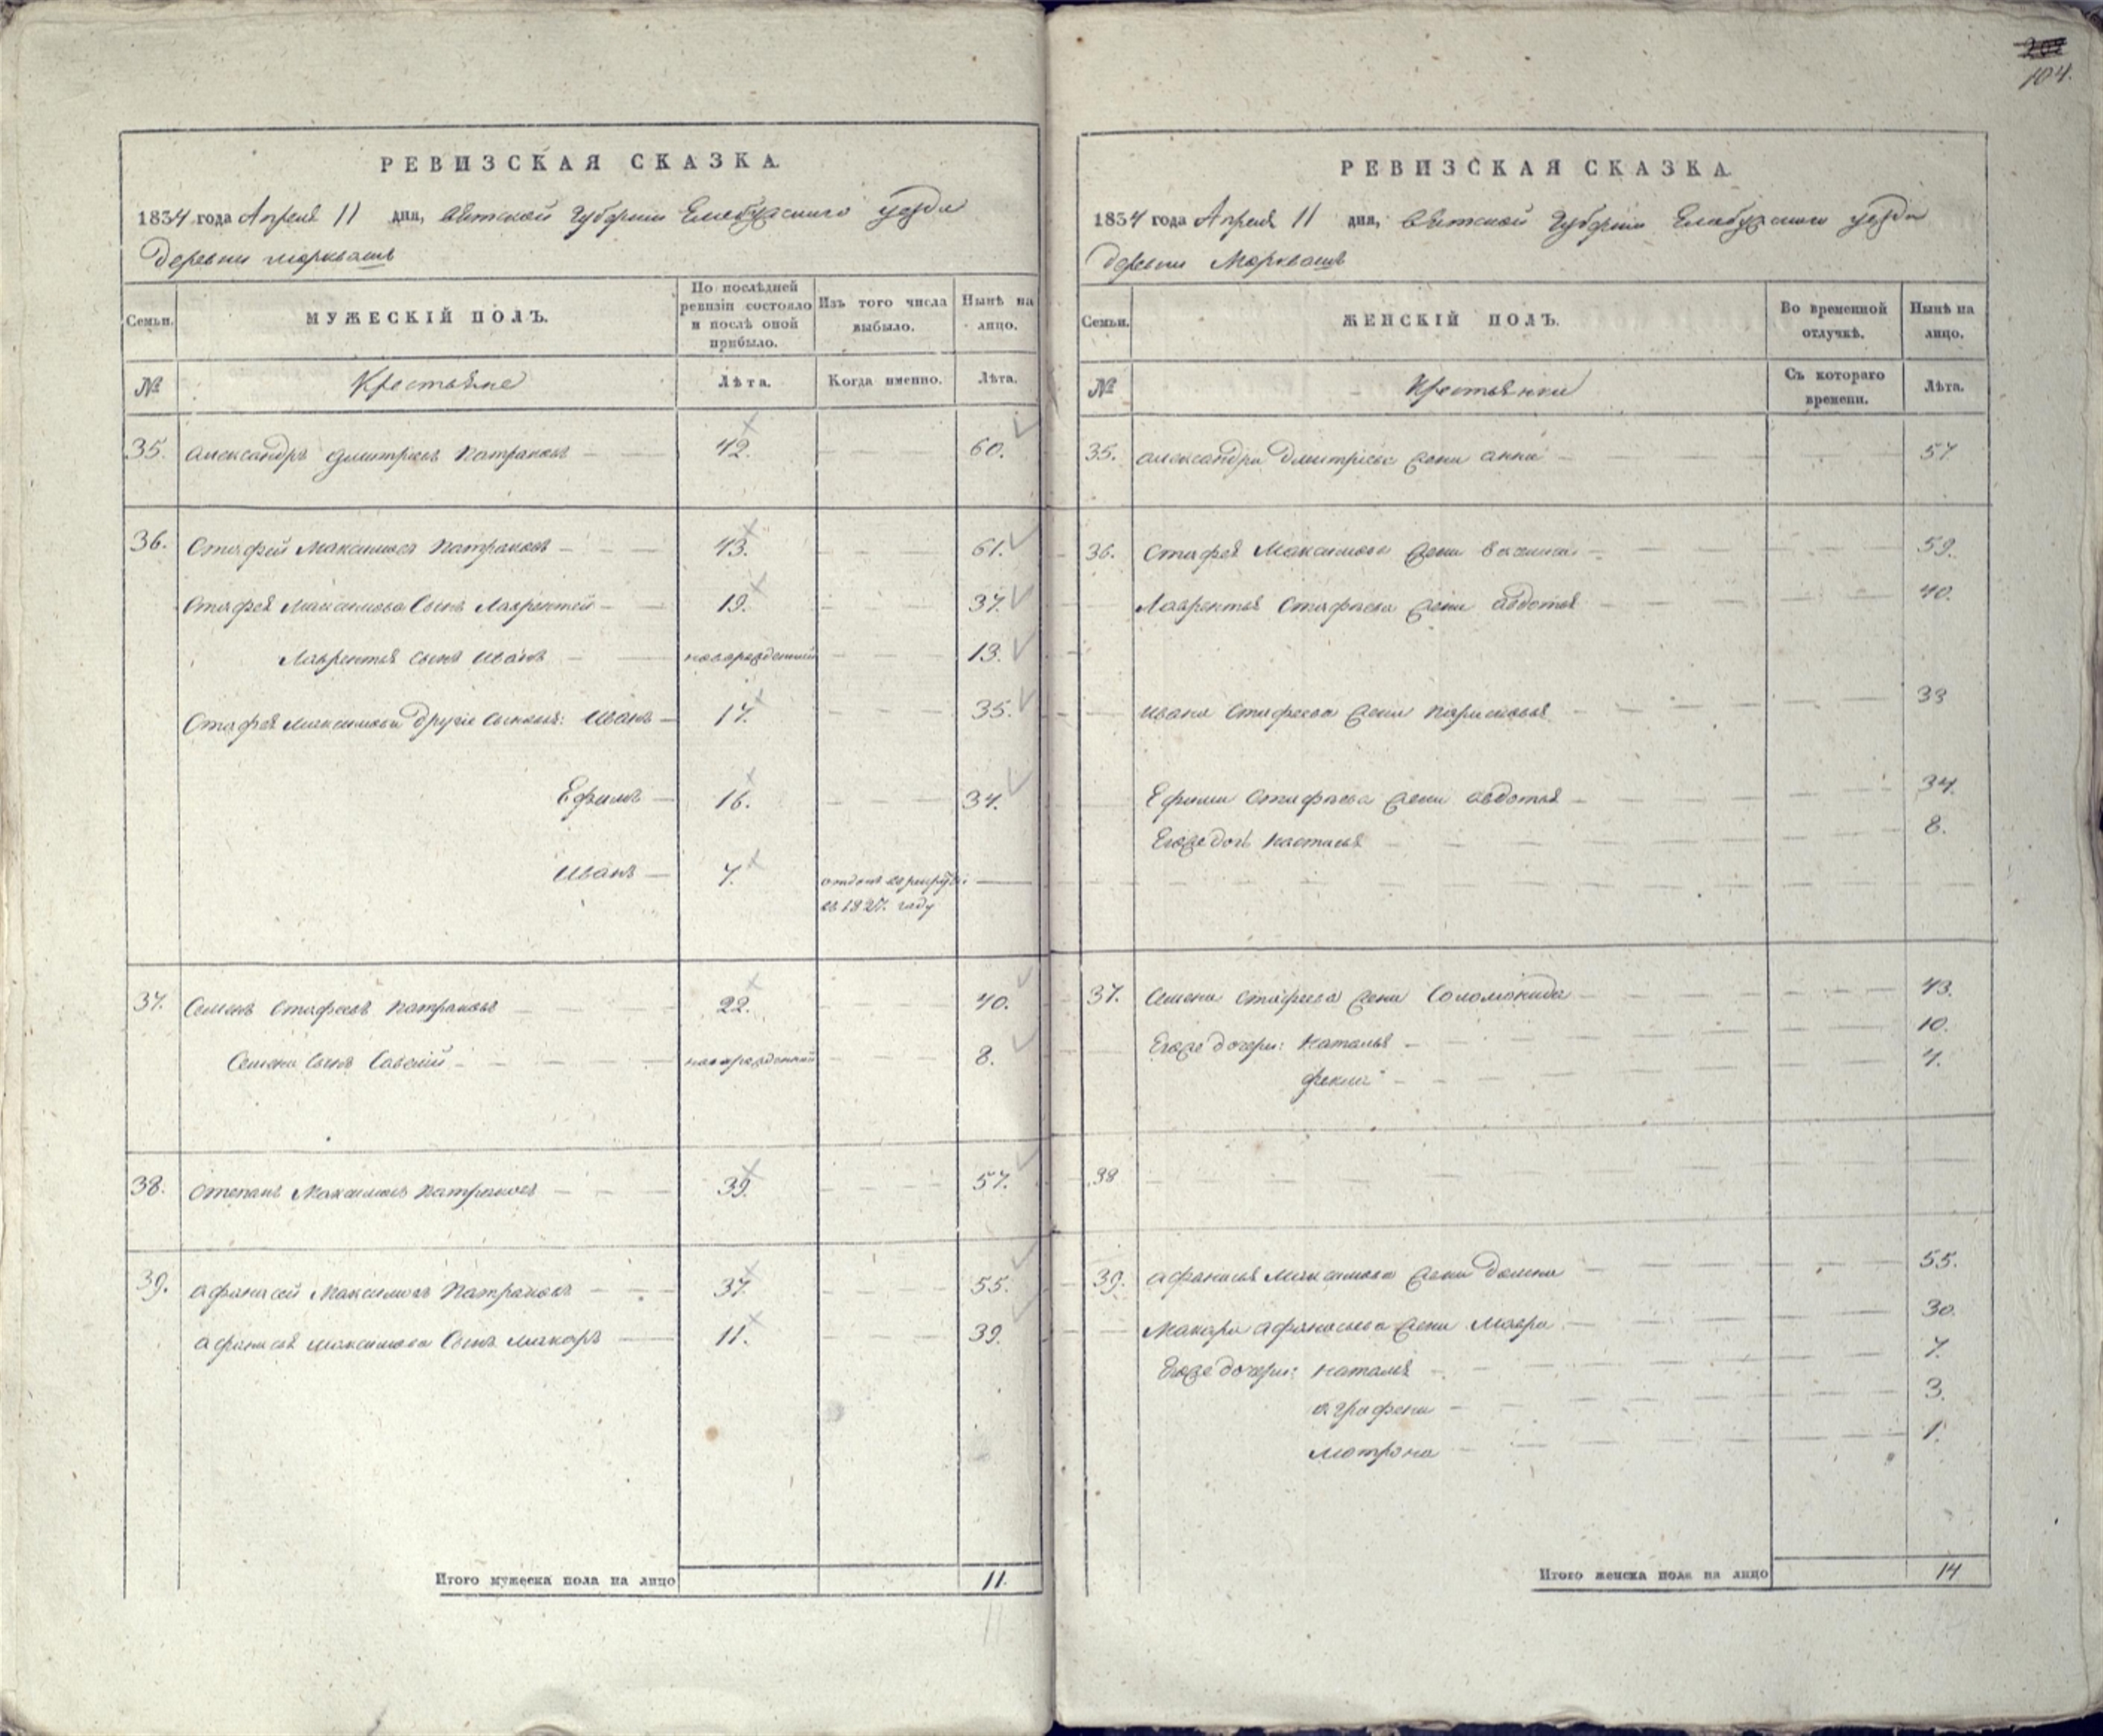 РЕВИЗСКАЯ СКАЗКА.
1834 года Апреля 11 дня, Вятской Губернии Елабужского уезда
деревни Морквашъ
Семьи.
МУЖЕСКІЙ ПОЛЪ.
По послѣдней ревизіи состояло и послѣ оной прибыло.
Изъ того числа выбыло.
Нынѣ на лицо.
№
Крестьяне
Лѣта.
Когда именно.
Лѣта.
35. Александръ Дмитріевъ Патраковъ 42. 60.
36. Стафей Максимовъ Патраковъ 43. 61.
Стафея Максимова Сынъ Лаврентей 19. 37.
Лаврентья сынъ Иванъ новорожденный 13.
Стафея Максимова другіе сыновья: Иванъ 17. 35.
Ефимъ 16. 34.
Иванъ 7. отданъ в рекруты
въ 1827. году
37. Семенъ Стафеевъ Патраковъ 22. 40.
Семена Сынъ Савелій новорожденный 8.
38. Степанъ Максимовъ Патраковъ 39. 57.
39. Афанасей Максимовъ Патраковъ 37. 55.
Афанасья Максимова Сынъ Макаръ 11. 39.
Итого мужеска пола на лицо 11.
11
104.
РЕВИЗСКАЯ СКАЗКА.
1834 года Апреля 11 дня, Вятской Губерніи Елабужского уезда
деревни Морквашъ
Семьи.
ЖЕНСКІЙ ПОЛЪ.
Во временной отлучкѣ.
Нынѣ на лицо.
№
Крестьянки
Съ котораго времени.
Лѣта.
35. Александра Дмитріева жена Анна 57
36. Стафея Максимова жена 59.
Лаврентья Стафьева жена Авдотья 40.
Ивана Стафеева жена Парасковья 33
Ефима Стафьева жена Авдотья 34.
Егоже дочь Настасья 8.
37. Семена Стафеева жена Соломонида 43.
Егоже дочери: Наталья 10.
Фекла 4.
38
39. Афанасья Максимова жена Домна 55.
Макара Афанасьева жена Мавра 30.
Егоже дочери: Наталья 7.
Аграфена 3.
Матрона 1.
Итого женска пола на лицо 14